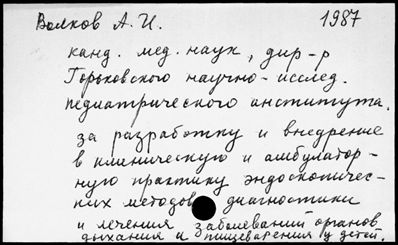 Волков А. И. 1987
канд. мед. наук, дир-р
Горьковского научно-исслед.
педиатрического института,
за разработку и внедрение
в клиническую и амбулатор-
ную практику эндоскопичес-
ких методов диагностики
и лечения заболеваний органов
дыхания и пищеварения у детей.